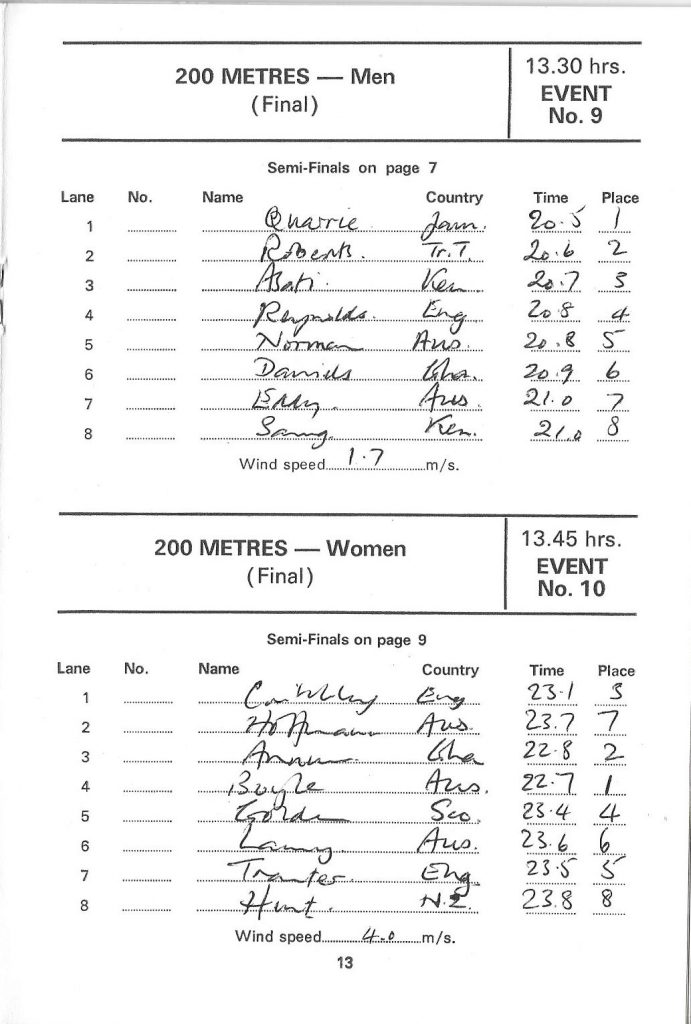 200 METRES — Men
(Final)
13.30 hrs.
EVENT
No. 9
Semi-Finals on page 7
Lane No. Name Country Time Place
1 Quarrie Jam. 20.5 1
2 Roberts. Tr.T. 20.6 2
3 Asati. Ken 20.7 3
4 Reynolds. Eng 20.8 4
5 Norman Aus. 20.8 5
6 Daniels Gha. 20.9 6
7 Aus. 21.0 7
8 Sang. Ken. 21.0 8
Wind speed 1.7 m/s.
200 METRES — Women
(Final)
13.45 hrs.
EVENT
No. 10
Semi-Finals on page 9
Lane No. Name Country Time Place
1 Eng 23.1 3
2 Hoffmann Aus. 23.7 7
3 Annum Gha 22.8 2
4 Boyle Aus. 22.7 1
5 Golden Sco. 23.4 4
6 Lamy Aus. 23.6 6
7 Tranter Eng 23.5 5
8 Hunt. N.Z. 23.8 8
Wind speed 4.0 m/s.
13